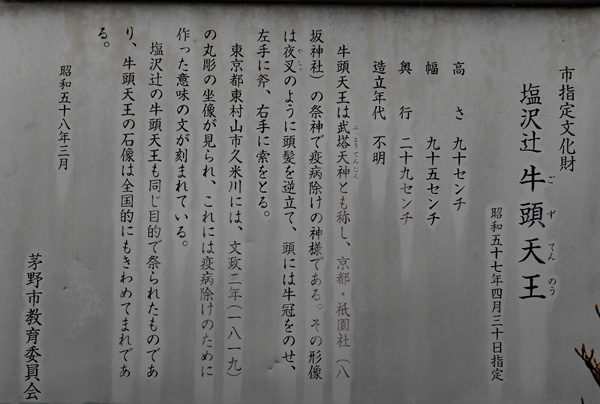 市指定文化財
塩沢辻 牛頭天王
ごずてんのう
昭和五十七年四月三十日指定
高さ 九十センチ
幅 九十五センチ
奥行 二十九センチ
造立年代 不明
牛頭天王は武塔天神とも称し、京都・祇園社(八
ふとうてんじん
坂神社)の祭神で疫病除けの神様である。その形像
は夜叉のように頭髪を逆立て、頭には牛冠をのせ、
やしゃ
左手に斧、右手に索をとる。
東京都東村山市久米川には、文政二年(一八一九)
の丸彫の坐像が見られ、これには疫病除けのために
作った意味の文が刻まれている。
塩沢辻の牛頭天王も同じ目的で祭られたものであ
り、牛頭天王の石像は全国的にもきわめてまれであ
る。
昭和五十八年三月
茅野市教育委員会